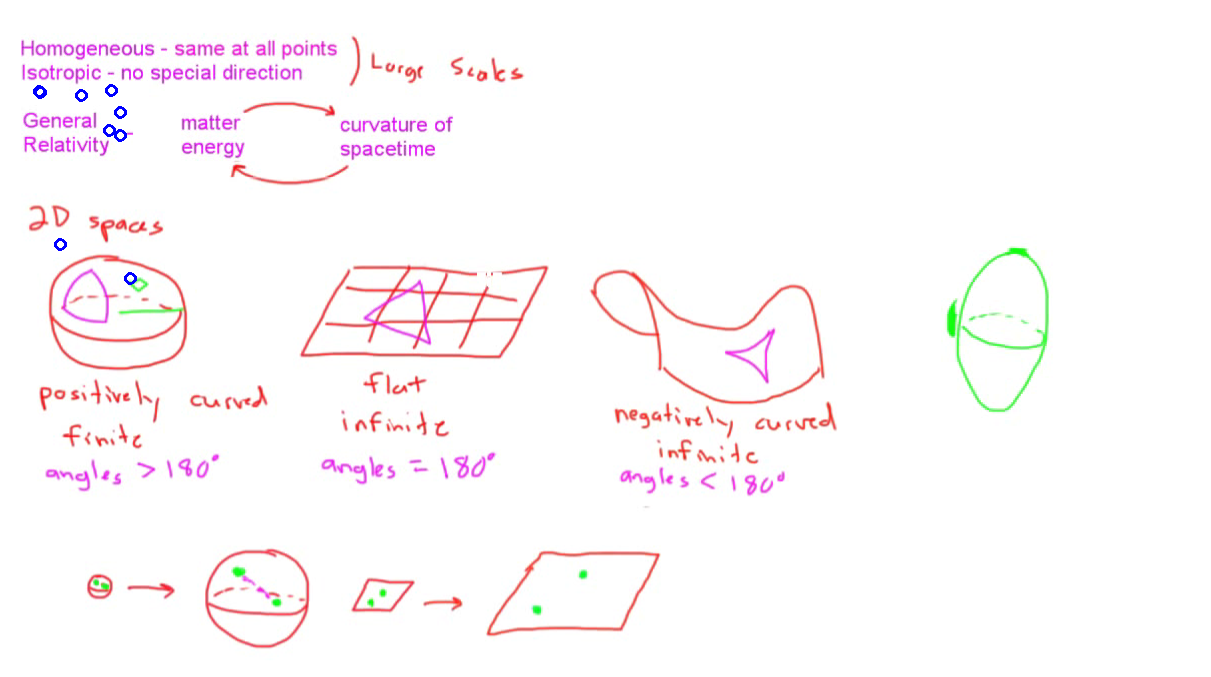 Homogeneous - same at all points
Isotropic - no special direction
Large Scales
General
Relativity -
matter
energy
curvature of
spacetime
2D spaces
positively curved
finite
angles > 180°
flat
infinite
angles = 180°
negatively curved
infinite
angles < 180°